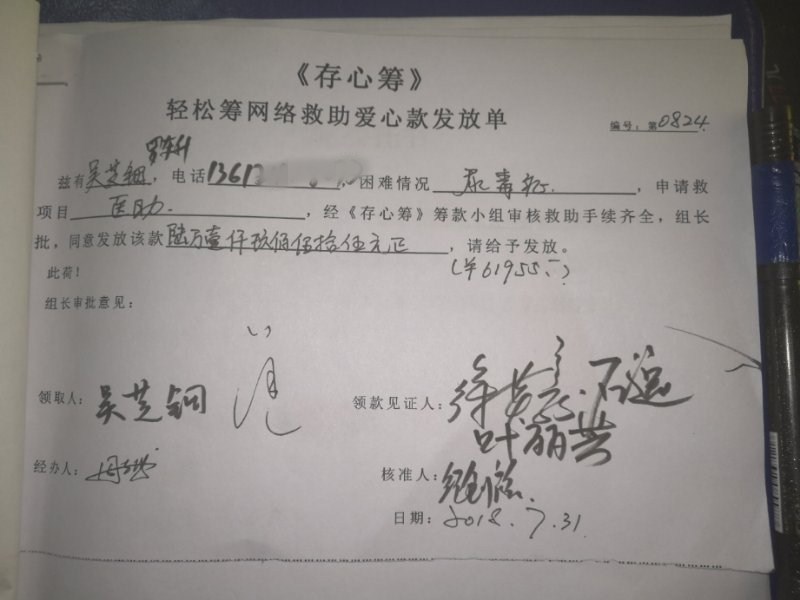 《存心筹》
轻松筹网络救助爱心款发放单
编号：第0824
兹有吴芝钿，电话1361，困难情况尿毒症，申请救
项目医助.，经《存心筹》筹款小组审核救助手续齐全，组长
批，同意发放该款陆万壹仟玖佰伍拾伍元正，请给予发放。
(￥61955.)
此荷！
组长审批意见：
领取人：吴芝钿
领款见证人：
叶丽芸
经办人：
核准人：
日期：2018.7.31